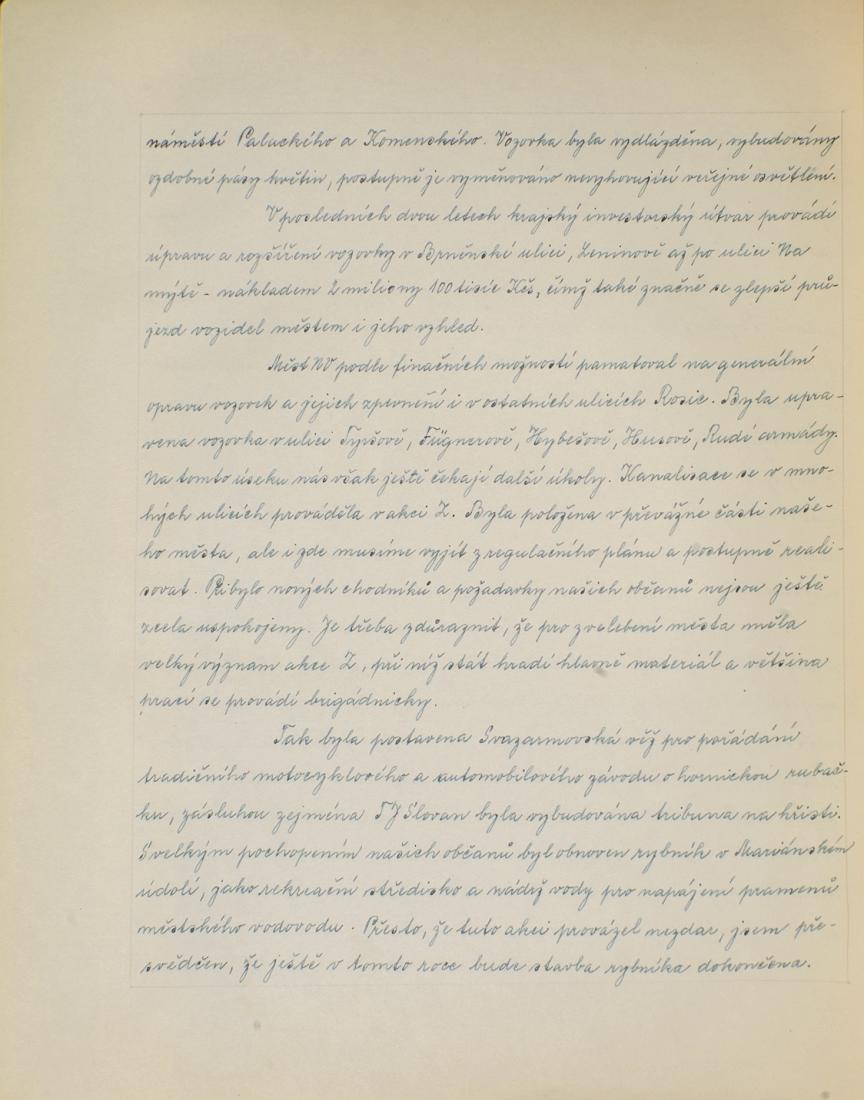 náměstí Palackého a Komenského. Vozovka byla vydlážděna, vybudovány
ozdobné pásy květin, postupně je vyměnováno nevyhovující veřejné osvětlení.
V posledních dvou letech krajský investorský útvar provádí
úpravu a rozšíření vozovky v Brněnské ulici, Leninově až po ulici Na
mýtě - nákladem 2 miliony 100 tisíc Kčs, čímž také značně se zlepší prů-
jezd vozidel městem i jeho vzhled.
Měst NV podle finačních možností pamatoval na generální
opravu vozovek a jejich zpevnění i v ostatních ulicích Rosic. Byla upra-
vena vozovka v ulici Tyršově, Fügnerově, Hybešově, Husově, Rudé armády.
Na tomto úseku nás však ještě čekají další úkoly. Kanalisace se v mno-
hých ulicích prováděla v akci Z. Byla položena v převážné části naše-
ho města, ale i zde musíme vyjít z regulačního plánu a postupně reali-
sovat. Přibylo nových chodníků a požadavky našich občanů nejsou ještě
zcela uspokojeny. Je třeba zdůraznit, že pro zvelebení města měla
velký význam akce Z, při níž stát hradí hlavně materiál a většina
prací se provádí brigádnicky.
Tak byla postavena Svazarmovská věž pro pořádání
tradičního motocyklového a automobilového závodu o hornickou rubač-
ku, zásluhou zejména TJ Slovan byla vybudována tribuna na hřišti.
S velkým pochopením našich občanů byl obnoven rybník v Mariánském
údolí, jako rekreační středisko a nádrž vody pro napájení pramenů
městského vodovodu. Přesto, že tuto akci provázel nezdar, jsem pře-
svědčen, že ještě v tomto roce bude stavba rybníka dokončena.